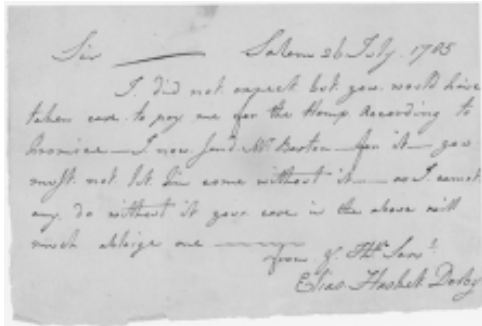 Sir —— Salem 26 July 1785
I did not expect but you would have
taken care to pay me for the Hemp According to
Promise — I now send Mr Barton for it — you
must not let him come without it — as I cannot
any do without it your care in the above will
much oblige one ———
from yr Hble Servt
Elias Hasket Derby